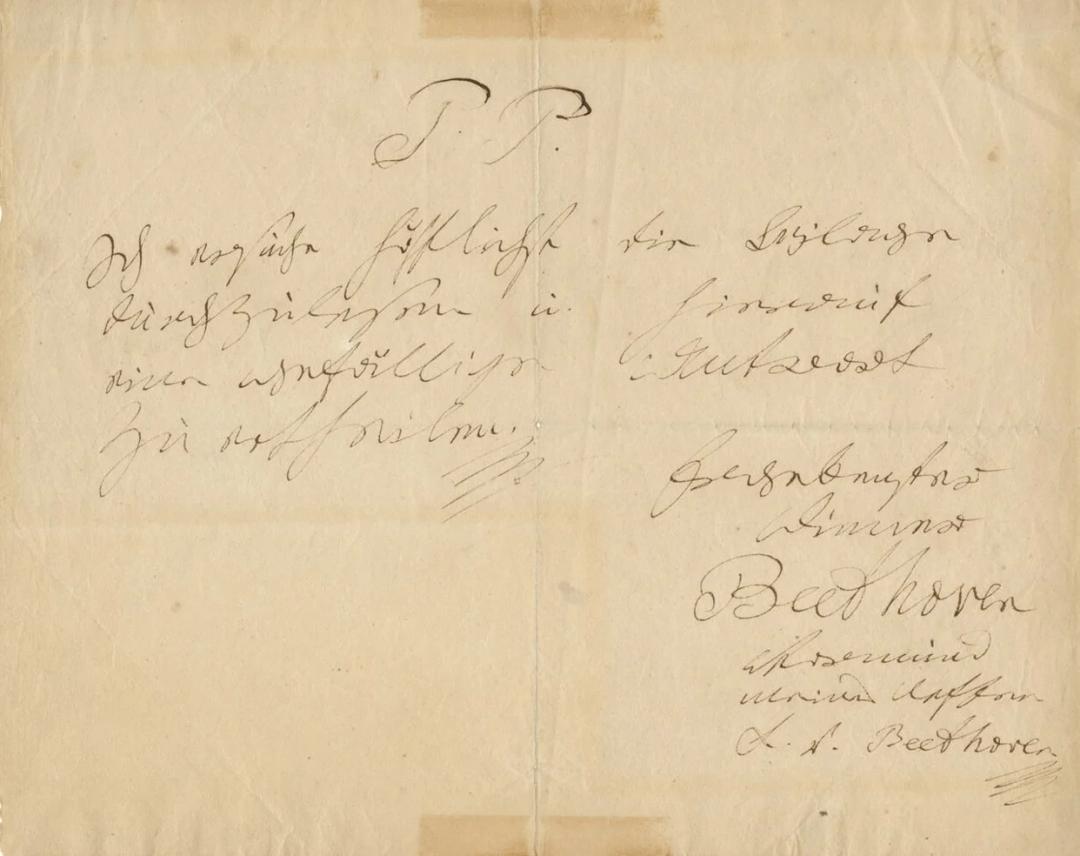 P. P.
Ich ersuche höflichst die Beylage
durchzulesen u. hierauf
eine gefällige Antwort
zu ertheilen.
Ergebenster
Diener
Beethoven
Vormund
meines Neffen
K. v. Beethoven